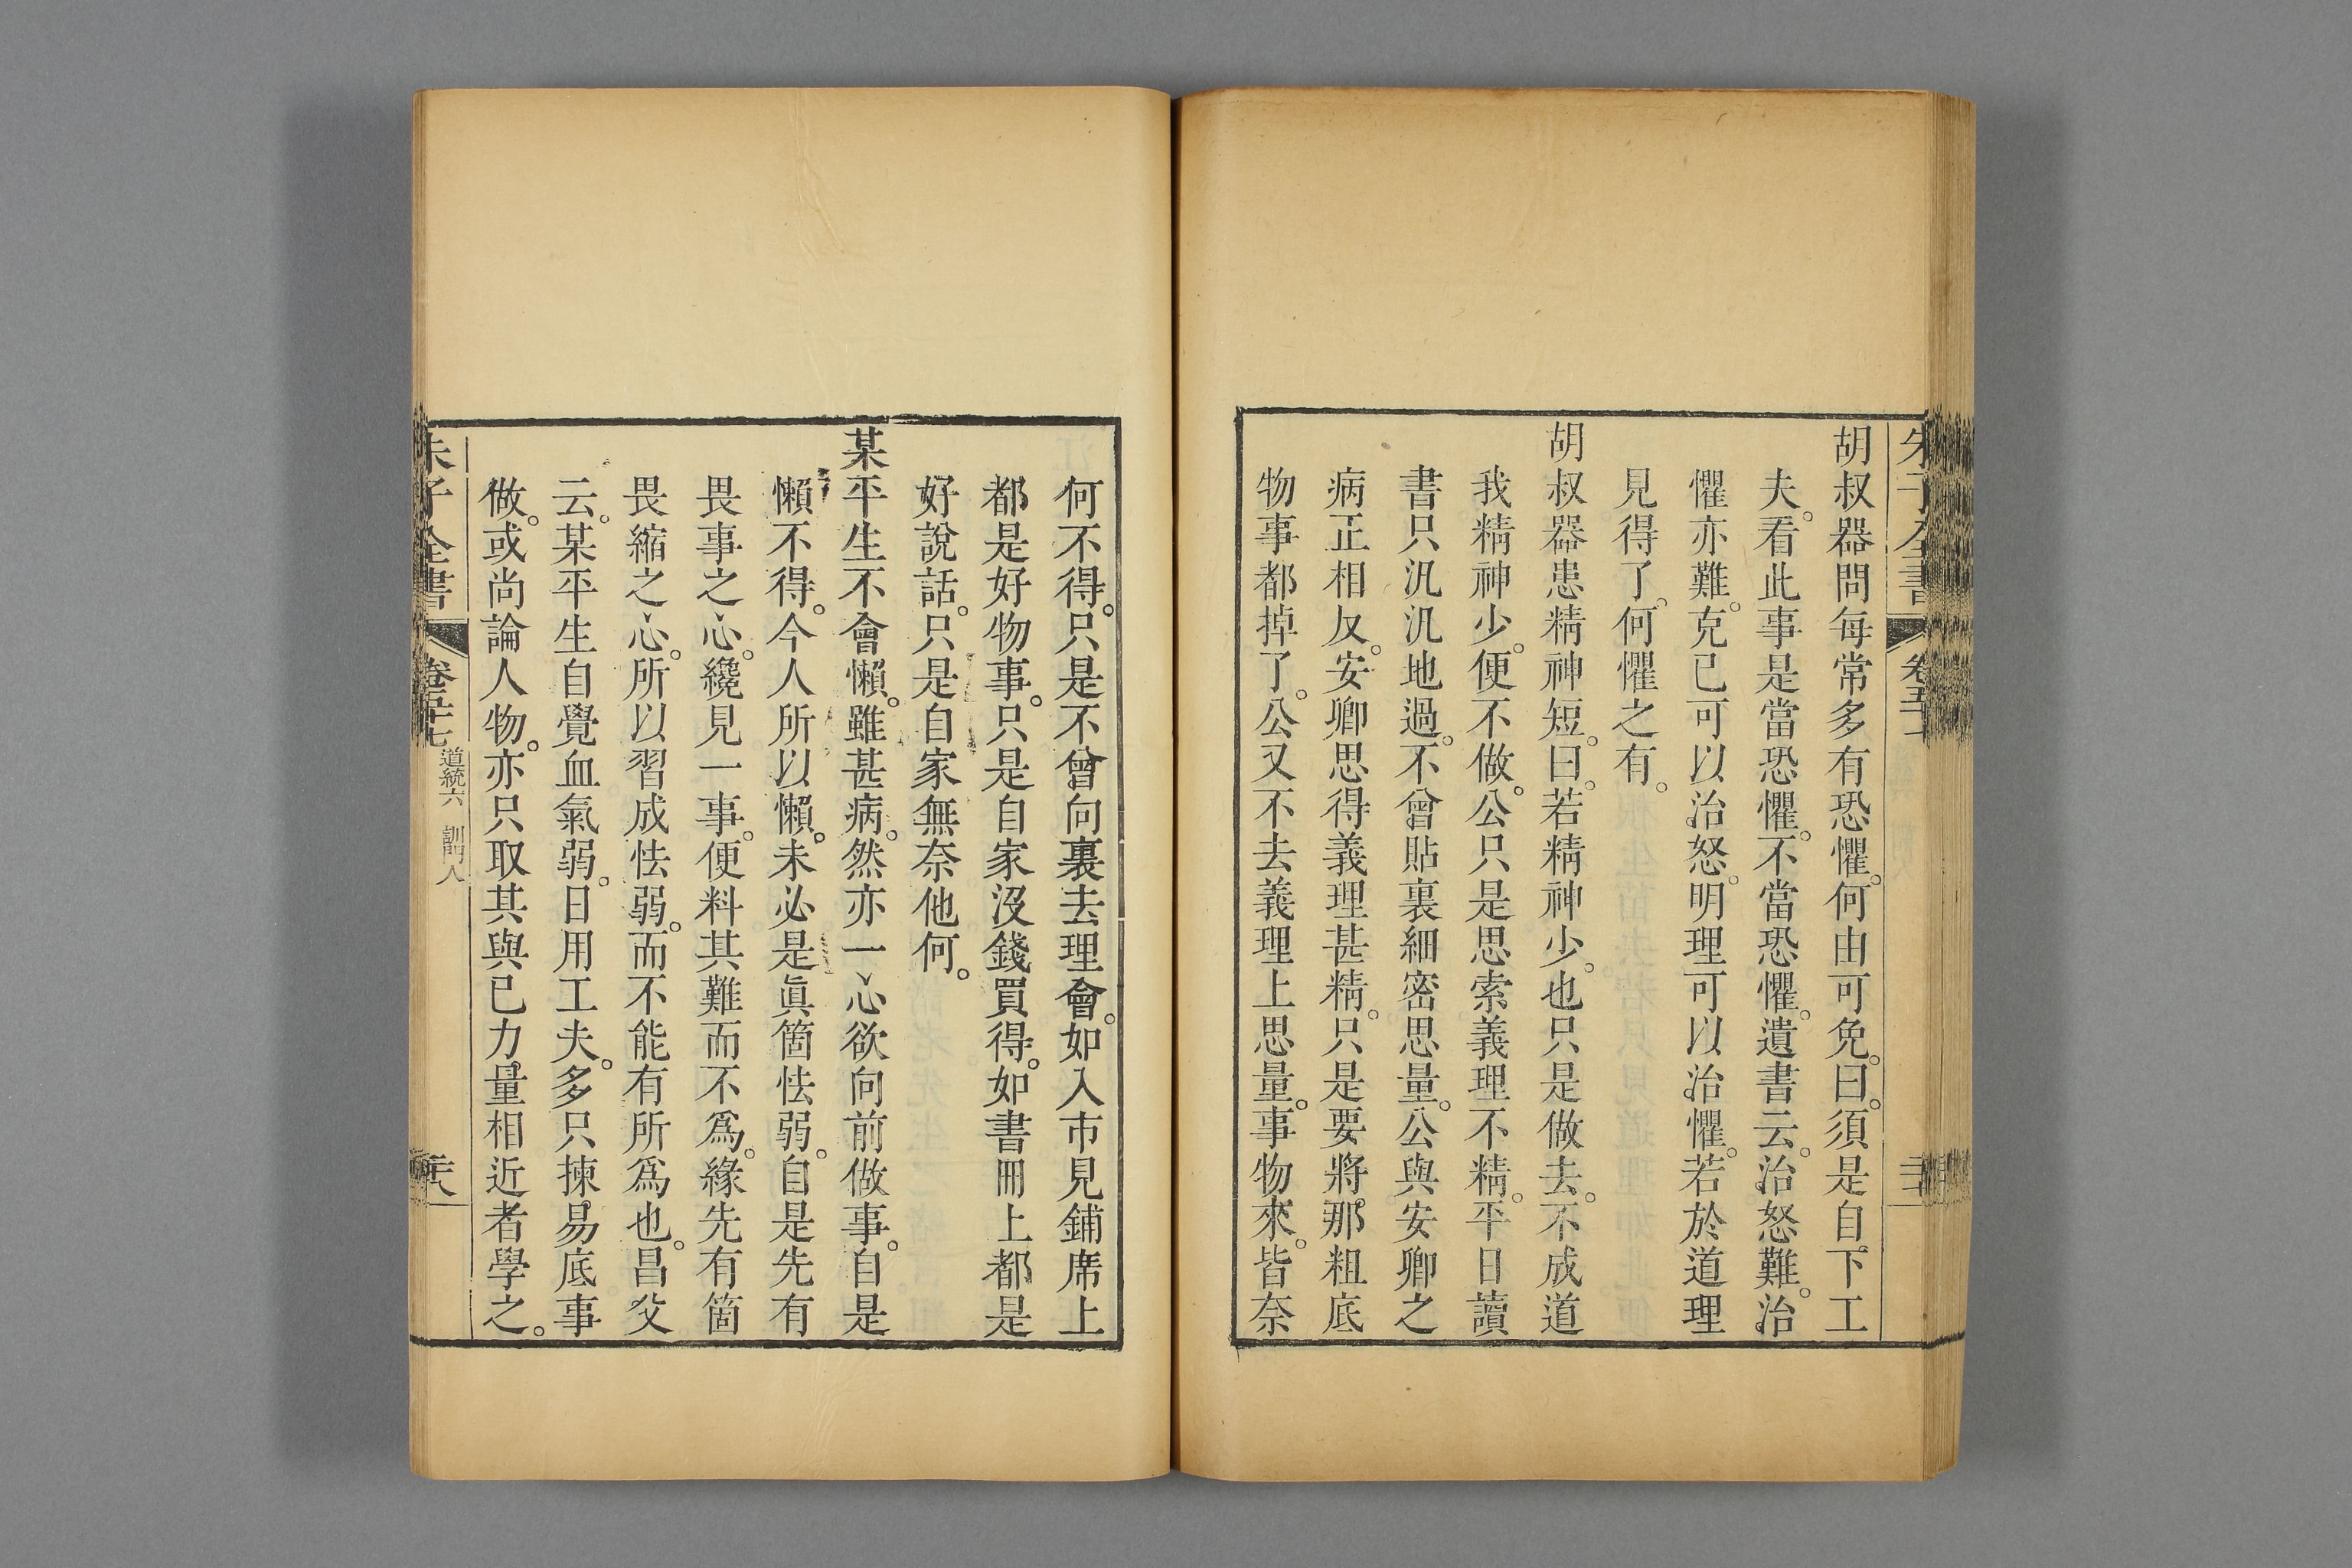 胡叔器問每常多有恐懼。何由可免。曰。須是自下工
夫。看此事是當恐懼。不當恐懼。遺書云。治怒難。治
懼亦難。克己可以治怒。明理可以治懼。若於道理
見得了。何懼之有。
胡叔器患精神短。曰。若精神少。也只是做去。不成道
我精神少。便不做。公只是思索義理不精。平日讀
書只汎汎地過。不曾貼裏細密思量。公與安卿之
病正相反。安卿思得義理甚精。只是要將那粗底
物事都掉了。公又不去義理上思量。事物來。皆奈
何不得。只是不曾向裏去理會。如入市見鋪席上
都是好物事。只是自家沒錢買得。如書冊上都是
好說話。只是自家無奈他何。
某平生不會懶。雖甚病。然亦一心欲向前做事。自是
懶不得。今人所以懶。未必是眞箇怯弱。自是先有
畏事之心。纔見一事。便料其難而不爲。緣先有箇
畏縮之心。所以習成怯弱。而不能有所爲也。昌父
云。某平生自覺血氣弱。日用工夫。多只揀易底事
做。或尚論人物。亦只取其與己力量相近者學之。
朱子全書 卷五十七 道統六 訓門人